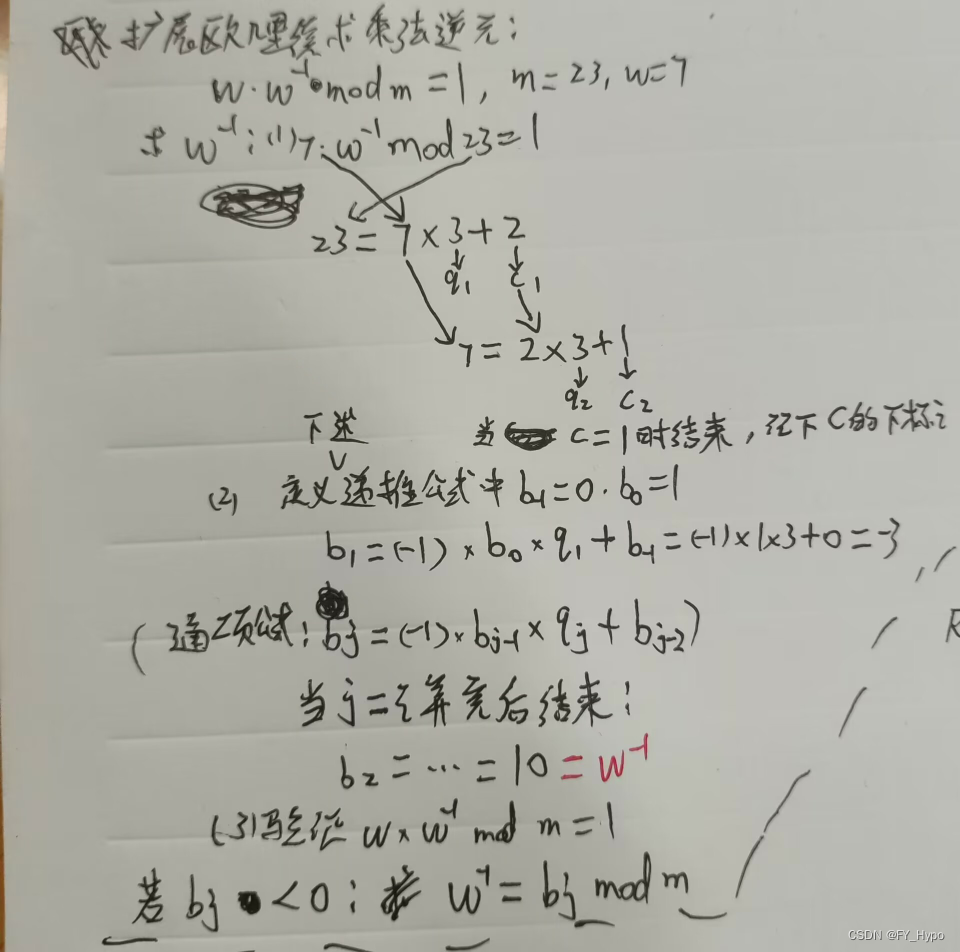 扩展欧几里得求乘法逆元:
w·w⁻¹ mod m = 1, m=23, w=7
求 w⁻¹: (1) 7·w⁻¹ mod 23 = 1
23 = 7 × 3 + 2
q₁ c₁
7 = 2 × 3 + 1
q₂ c₂
当 c=1时结束,记下C的下标i
下述
(2) 定义递推公式中 b₋₁=0. b₀=1
b₁=(-1) × b₀ × q₁ + b₋₁ = (-1)×1×3+0=-3
(通项公式: bj = (-1) × bj-1 × qj + bj-2)
当 j=i 算完后结束:
b₂ = ··· = 10 = w⁻¹
(3) 验证 w × w⁻¹ mod m = 1
若 bj < 0: w⁻¹ = bj mod m
CSDN @FY_Hypo